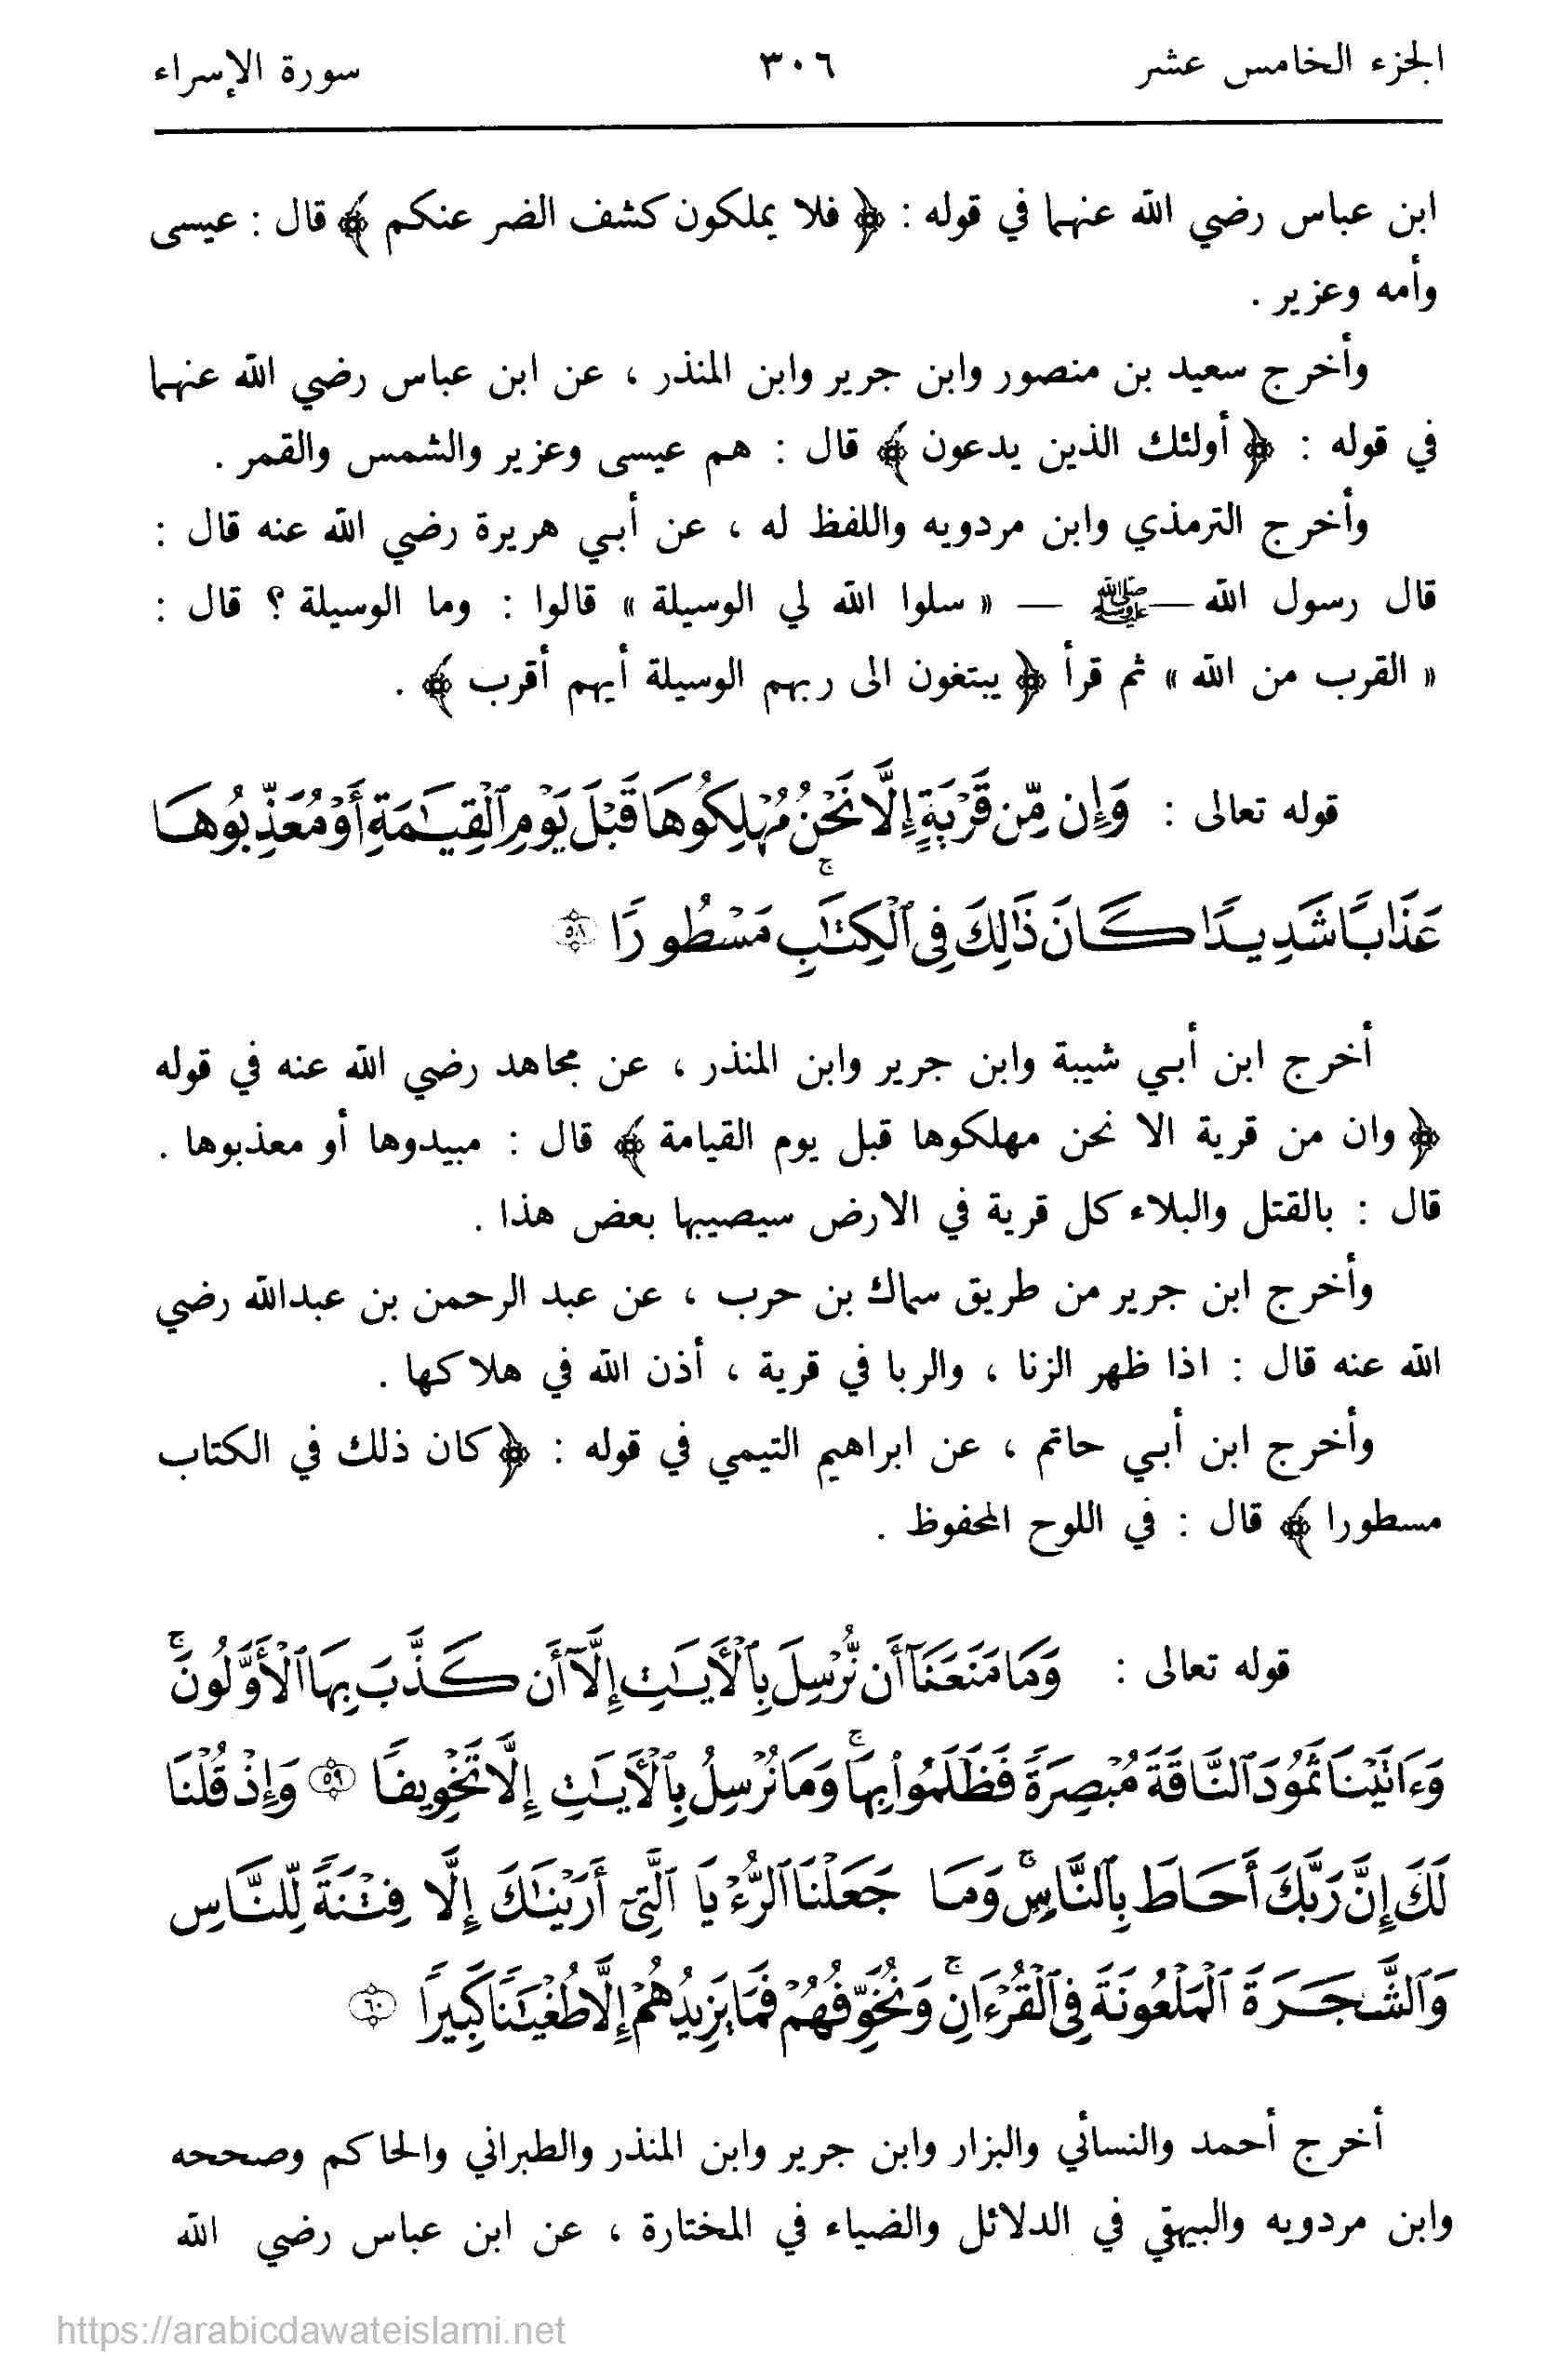 الجزء الخامس عشر ٣٠٦ سورة الإسراء
ابن عباس رضي الله عنهما في قوله : ﴿ فلا يملكون كشف الضر عنكم ﴾ قال : عيسى
وأمه وعزير .
وأخرج سعيد بن منصور وابن جرير وابن المنذر ، عن ابن عباس رضي الله عنهما
في قوله : ﴿ أولئك الذين يدعون ﴾ قال : هم عيسى وعزير والشمس والقمر .
وأخرج الترمذي وابن مردويه واللفظ له ، عن أبي هريرة رضي الله عنه قال :
قال رسول الله — ﷺ — « سلوا الله لي الوسيلة » قالوا : وما الوسيلة ؟ قال :
« القرب من الله » ثم قرأ ﴿ يبتغون الى ربهم الوسيلة أيهم أقرب ﴾ .
قوله تعالى : وَإِن مِّن قَرْيَةٍ إِلَّا نَحْنُ مُهْلِكُوهَا قَبْلَ يَوْمِ ٱلْقِيَـٰمَةِ أَوْ مُعَذِّبُوهَا
عَذَابًا شَدِيدًا ۚ كَانَ ذَٰلِكَ فِى ٱلْكِتَـٰبِ مَسْطُورًا ٥٨
أخرج ابن أبي شيبة وابن جرير وابن المنذر ، عن مجاهد رضي الله عنه في قوله
﴿ وان من قرية الا نحن مهلكوها قبل يوم القيامة ﴾ قال : مبيدوها أو معذبوها .
قال : بالقتل والبلاء كل قرية في الارض سيصيبها بعض هذا .
وأخرج ابن جرير من طريق سماك بن حرب ، عن عبد الرحمن بن عبدالله رضي
الله عنه قال : اذا ظهر الزنا ، والربا في قرية ، أذن الله في هلاكها .
وأخرج ابن أبي حاتم ، عن ابراهيم التيمي في قوله : ﴿ كان ذلك في الكتاب
مسطورا ﴾ قال : في اللوح المحفوظ .
قوله تعالى : وَمَا مَنَعَنَآ أَن نُّرْسِلَ بِٱلْأَيَـٰتِ إِلَّآ أَن كَذَّبَ بِهَا ٱلْأَوَّلُونَ ۚ
وَءَاتَيْنَا ثَمُودَ ٱلنَّاقَةَ مُبْصِرَةً فَظَلَمُوا۟ بِهَا ۚ وَمَا نُرْسِلُ بِٱلْأَيَـٰتِ إِلَّا تَخْوِيفًا ٥٩ وَإِذْ قُلْنَا
لَكَ إِنَّ رَبَّكَ أَحَاطَ بِٱلنَّاسِ ۚ وَمَا جَعَلْنَا ٱلرُّءْيَا ٱلَّتِىٓ أَرَيْنَـٰكَ إِلَّا فِتْنَةً لِّلنَّاسِ
وَٱلشَّجَرَةَ ٱلْمَلْعُونَةَ فِى ٱلْقُرْءَانِ ۚ وَنُخَوِّفُهُمْ فَمَا يَزِيدُهُمْ إِلَّا طُغْيَـٰنًا كَبِيرًا ٦٠
أخرج أحمد والنسائي والبزار وابن جرير وابن المنذر والطبراني والحاكم وصححه
وابن مردويه والبيهقي في الدلائل والضياء في المختارة ، عن ابن عباس رضي الله
https://arabicdawateislami.net